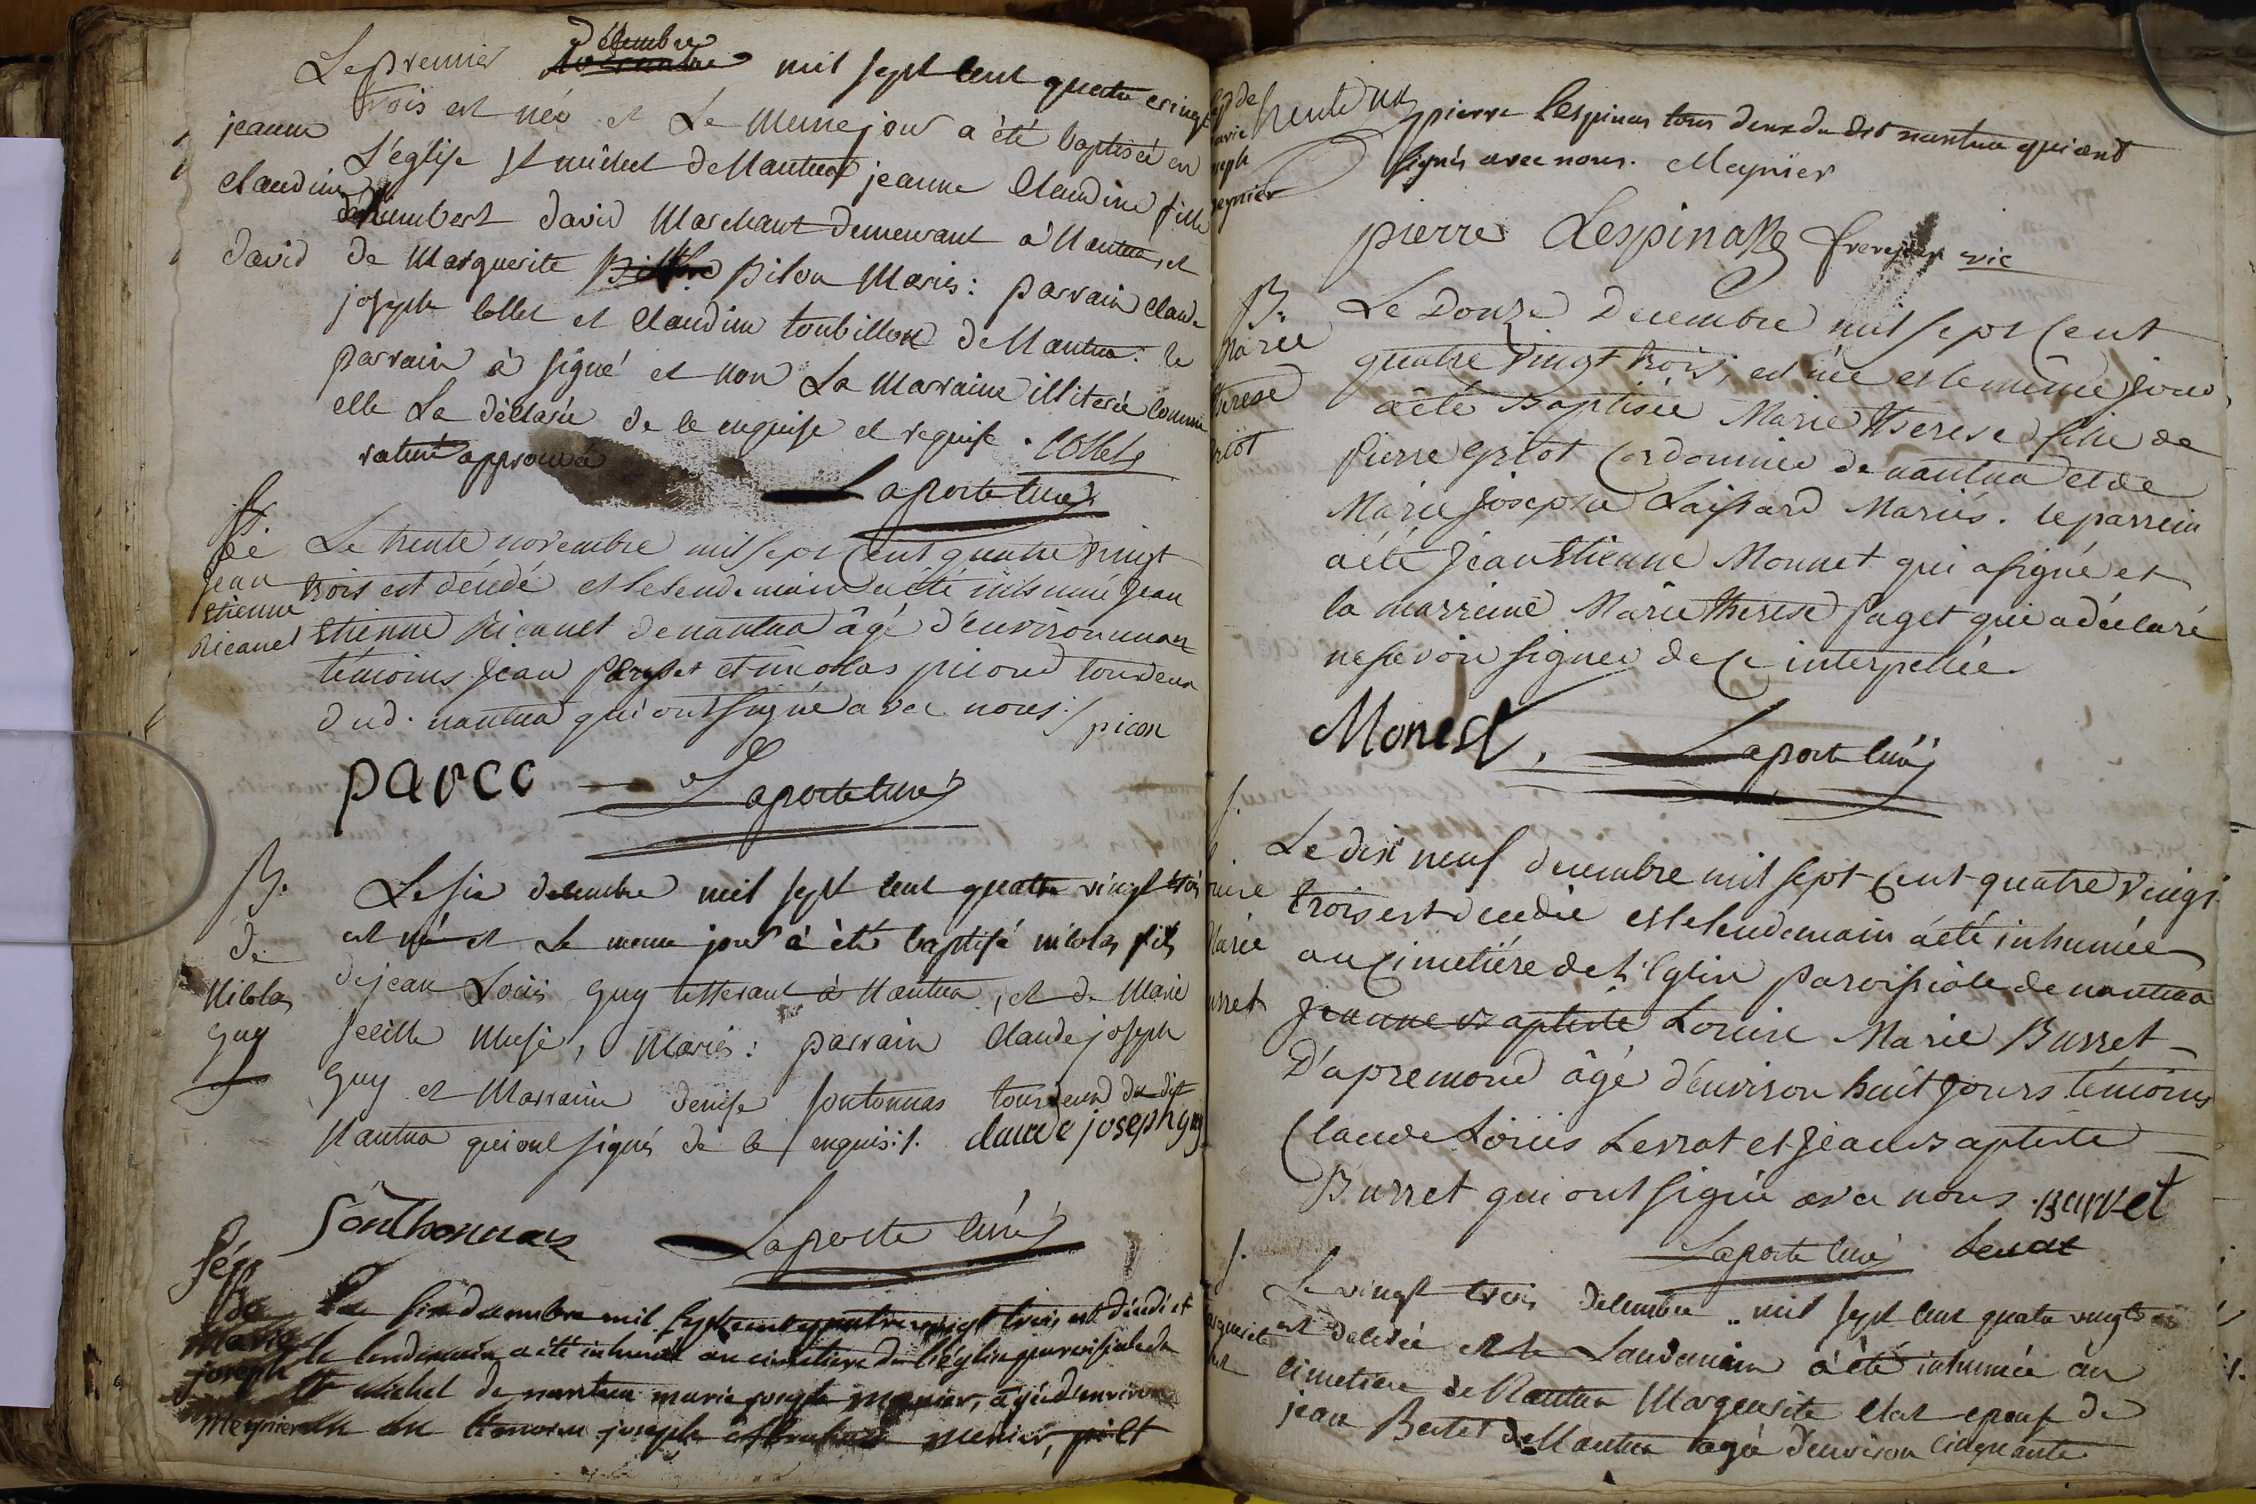 Le premier décembre mil sept cent quatre vingt
trois est née et Le meme jour a été baptiséé en
L'église St michel de Nantua jeanne Claudine fille
humbert david Marchant demeurant à Nantua, et
de Marguerite pilon Mariés : parrain Claude
joseph Collet et Claudine toubillon de Nantua : le
parrain à signé et non La Marraine illiterée comme
elle La déclaré de ce enquise et requise . Collet
raturé approuvé
Laporte Curé
jeanne
claudine
david
Le trente novembre mil sept Cent quatre vingt
trois est décédé et le lendemain a été inhumé Jean
Etienne Ricanet de nantua âgé d'environ un an
témoins Jean et nicolas picond tous deux
dud. nantua qui ont signé avec nous ./ picon
parcc Laporte curé
Jean
Etienne
Ricanet
B.
de
Nicolas
Guy
Le six decembre mil sept cent quatre vingt trois
est né et Le meme jour à été baptisé nicolas fils
de jean Louis Guy tisserant à Nantua, et de Marie
Mariés : parrain Claude joseph
Guy et Marraine denise fontonnas tous deux du dit
Nantua qui ont signés de ce enquis ./. claude joseph guy
Sonthonnax Laporte Curé
de
Marie
joseph
Meynier
Le six decembre mil sept cent quatre vingt trois est décédé et
le lendemain a été inhumé au cimetiere de l'église parroissiale de
St michel de nantua marie joseph menier, agé d'environ
un an témoins joseph menier, et
pierre Lespinas tous deux du dit nantua qui ont
signés avec nous. Meynier
pierre Lespinasse
B.
Marie
therese
Griot
Le Douze Decembre mil sept Cent
quatre vingt trois, est née et le même jour
a été Baptisée Marie therese fille de
Pierre Griot Cordonnier de nantua et de
Marie Josephe Laissard Mariés. le parrein
a été Jean Etienne Monnet qui a signé et
la marreine Marie therese Paget qui a déclaré
ne savoir signer de Ce interpellée.
Monest. Laporte Curé
Le dix neuf decembre mil sept Cent quatre vingt
trois est decedée et le lendemain a été inhumée
au Cimetiére de L'Eglise paroissiale de nantua
Jeanne Baptiste Louise Marie Burret
D'apremond âgé d'environ huit Jours témoins
Claude Louis Lerrat et Jean Baptiste
Burret qui ont signé avec nous . Burret
Laporte Curé
Le vingt trois decembre mil sept cent quatre vingts
est decedée et le Landemain à été inhumée au
cimetiere de Nantua Marguerite epouse de
jean Bertet de Nantua agée d'environ Cinquante